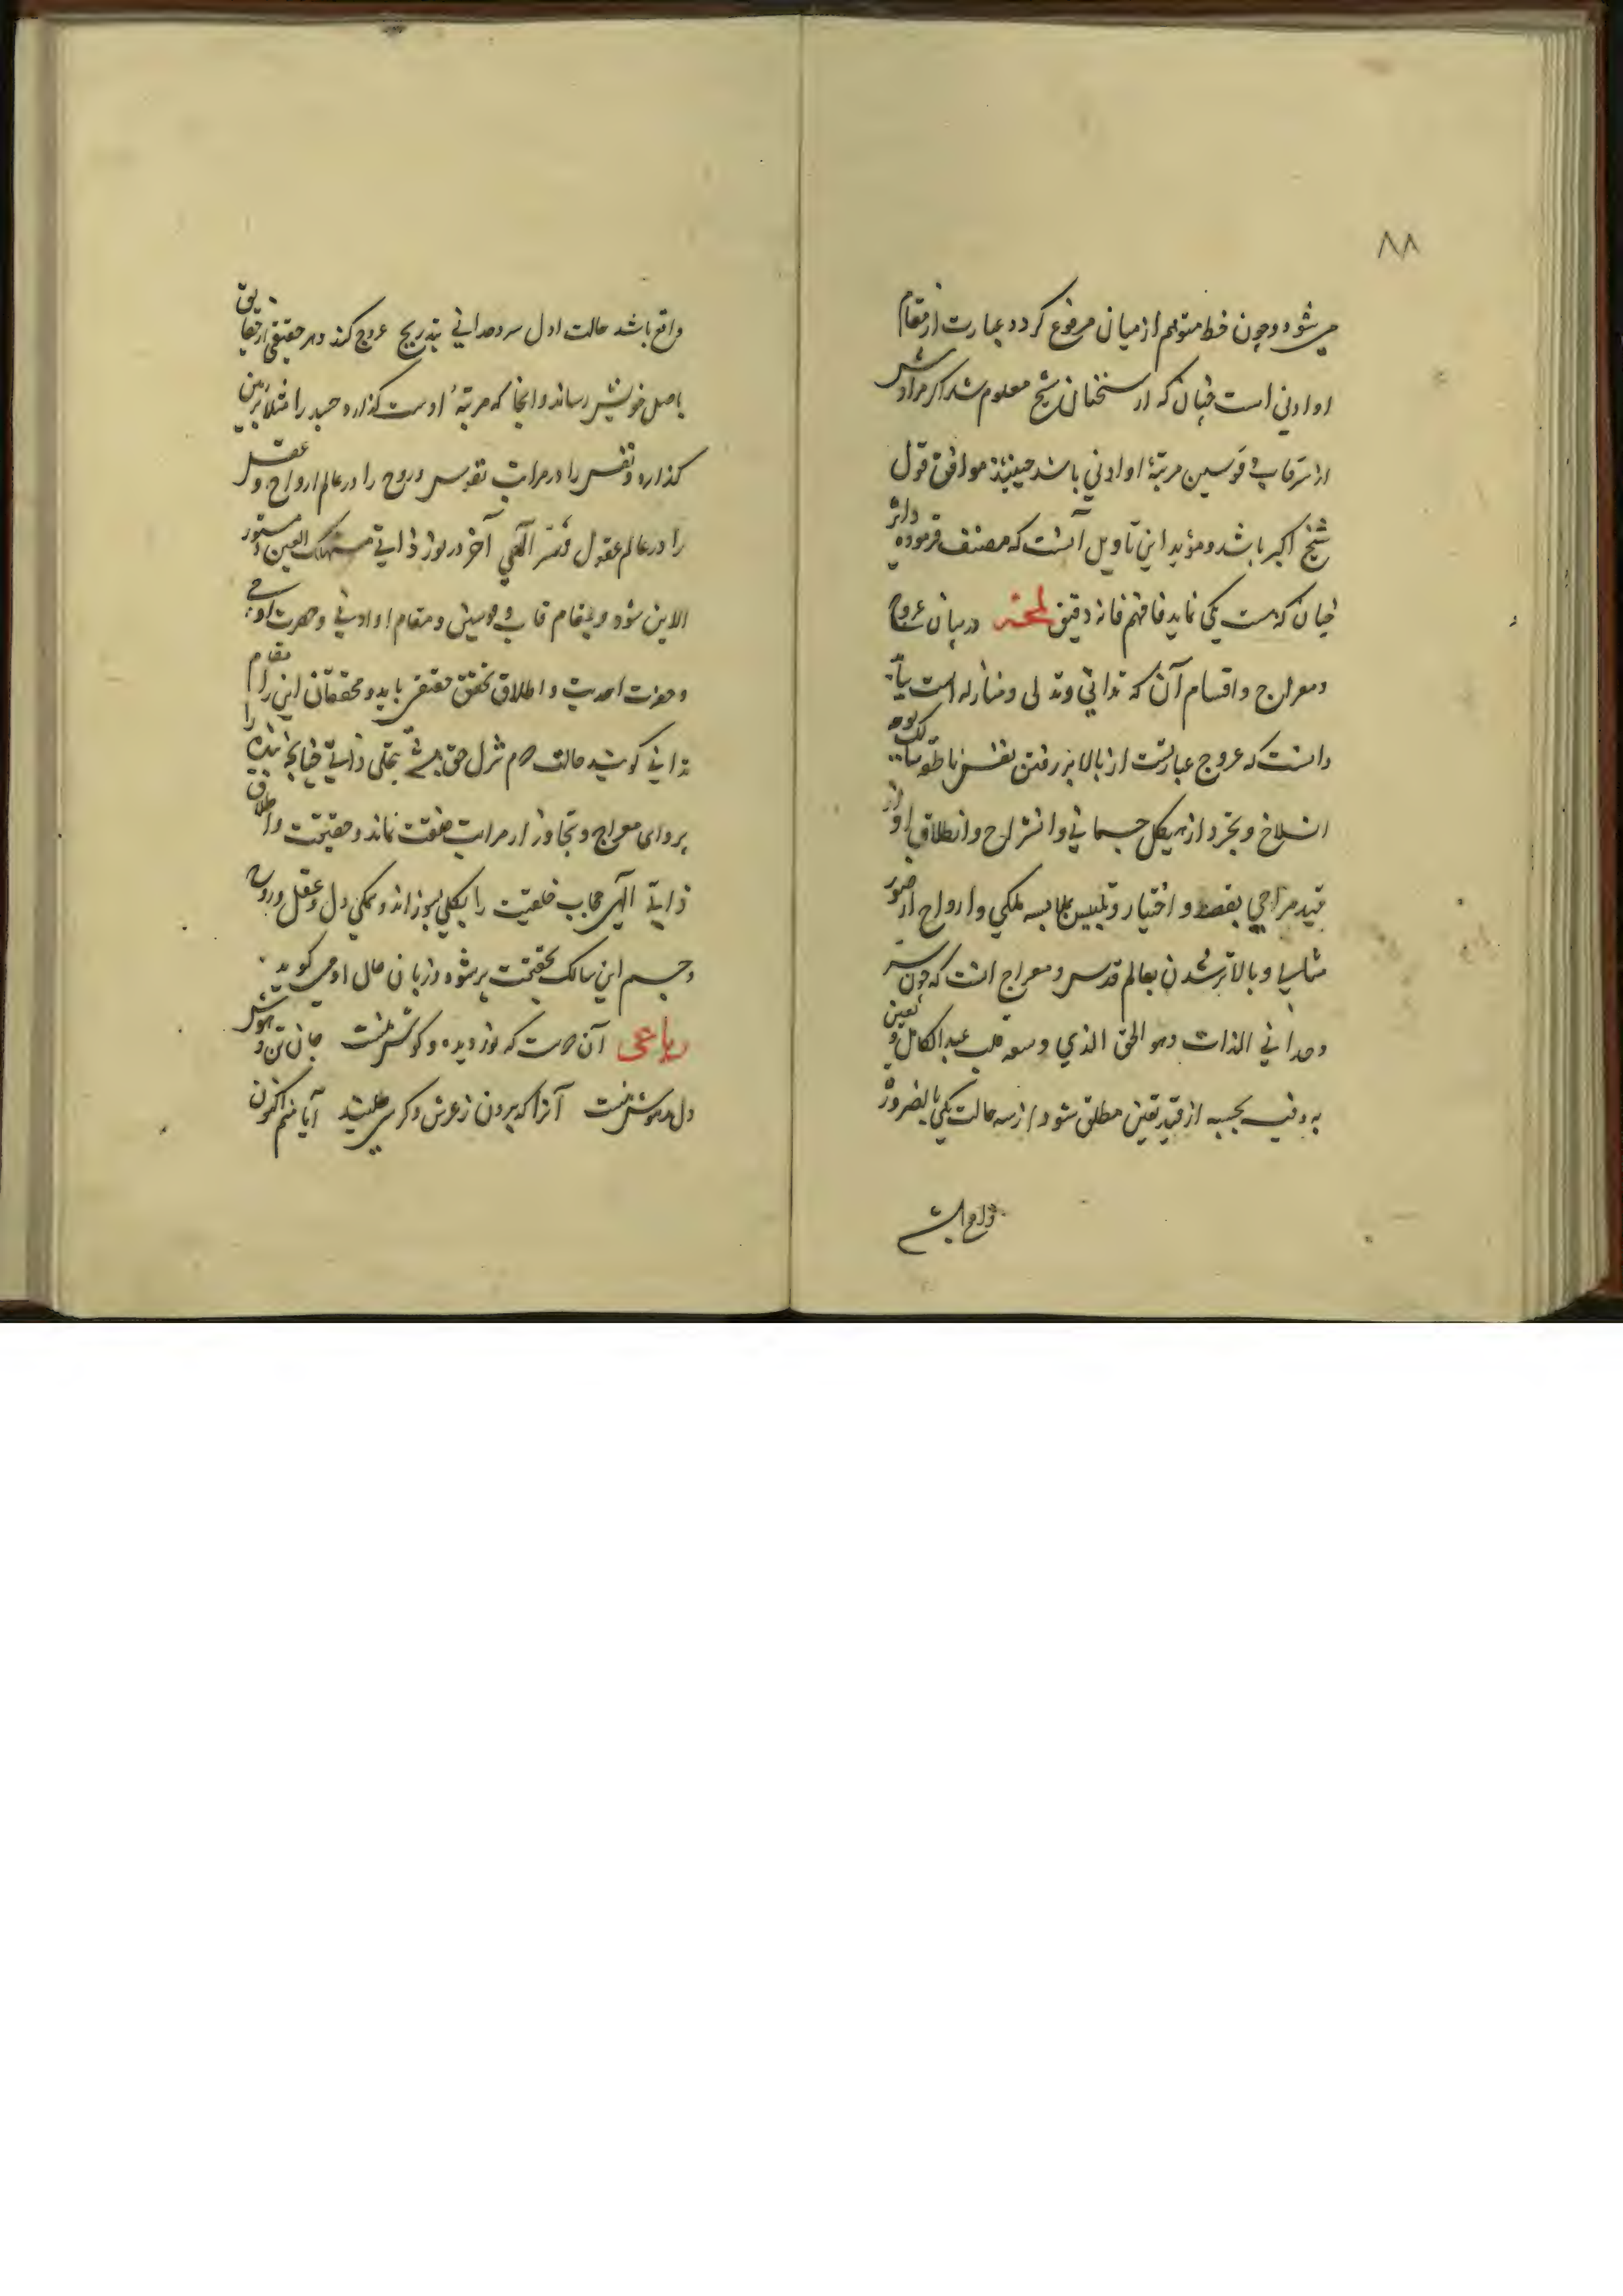 ۸۸
می شود و چون خط متوهم از میان مرفوع کردد عبارت از مقام
او ادنی است چنان که از سخنان شیخ معلوم شد اکر مرادش
از سرّ قاب قوسین مرتبهٔ او ادنی باشد حینئذ موافق قول
شیخ اکبر باشد و مؤید این تأویل آنست که مصنف فرموده دائر
چنان که هست یکی نماید فافهم فانه دقیق لمحه در بیان عروج
و معراج و اقسام آن که تدانی و تدلی و منازله است
دانست که عروج عبارتست از بالا بر رفتن نفس ناطقه
انسلاخ و تجرد از هیکل جسمانی و انشراح و انطلاق او از
قید مزاجی بقصد و اختیار و تلبیس بملابسه ملکی و ارواح از صور
مثالیه و بالاتر شدن بعالم قدس و معراج انست که چون سرّ
وحدانی الذات وهو الحق الذي وسعه قلب عبد الکامل و تعین
از قید تعین مطلق شود از سه حالت یکی بالضرورة
واقع باشد
واقع باشد حالت اول سر وحدانی بتدریج عروج کند و هر حقیقتی از حقایق
باصل خویش رساند و انجا که مرتبهٔ اوست کذارد جسد را مثلا بزمین
کذارد و نفس را در مراتب تقدیس و روح را در عالم ارواح و عقل
را در عالم عقول و سرّ آلهی آخر در نور ذاتی مستهلک العین و مستور
الاین شود و بمقام قاب قوسین و مقام او ادنی و حضرت
و حضرت احدیت و اطلاق تحقق حقیقی یابد و محققان این را مقام
تدانی کویند حالت دوم تنزل حق تجلی ذاتی چنانچه بنده را
پروای معراج و تجاوز از مراتب خلقت نماند و حقیقت و اطلاق
ذاتیهٔ آلهی حجاب خلقیت را بکلی بسوزاند و همکی دل و عقل و روح
و جسم این سالک بحقیقت پر شود و زبان حال او می کوید
رباعی آن دوست که نور دیده و کوش منست جان و تن و هوش
دل و مدهوش منست آنرا که برون ز عرش و کرسی طلبند آیا منم اکنون